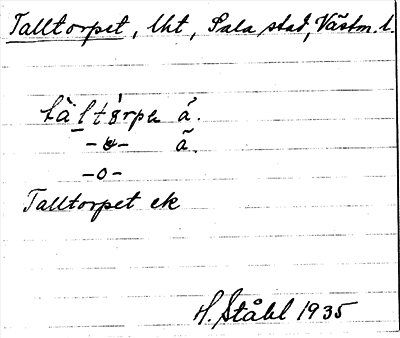 Talltorpet, lht, Sala stad, Västm. l.
tàltörpə å.
-ɵ- ã.
-o-
Talltorpet ek
H. Ståhl 1935